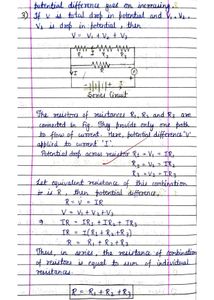 potential difference goes on increasing.
3) If V is total drop in potential and V₁, V₂,
V₃ is drop in potential, then
V = V₁ + V₂ + V₃
R₁ R₂ R₃
I
Series Circuit
The resistors of resistances R₁, R₂ and R₃ are
connected in fig. They provide only one path
to flow of current. Here, potential difference 'V'
applied to current 'I'.
Potential drop across resistor R₁ = V₁ = IR₁
R₂ = V₂ = IR₂
R₃ = V₃ = IR₃
Let equivalent resistance of this combination
is R, then potential difference.
R = V = IR
V = V₁ + V₂ + V₃
IR = IR₁ + IR₂ + IR₃
IR = I(R₁ + R₂ + R₃)
R = R₁ + R₂ + R₃
Thus, in series, the resistance of combination
of resistors is equal to sum of individual
resistances.
R = R₁ + R₂ + R₃